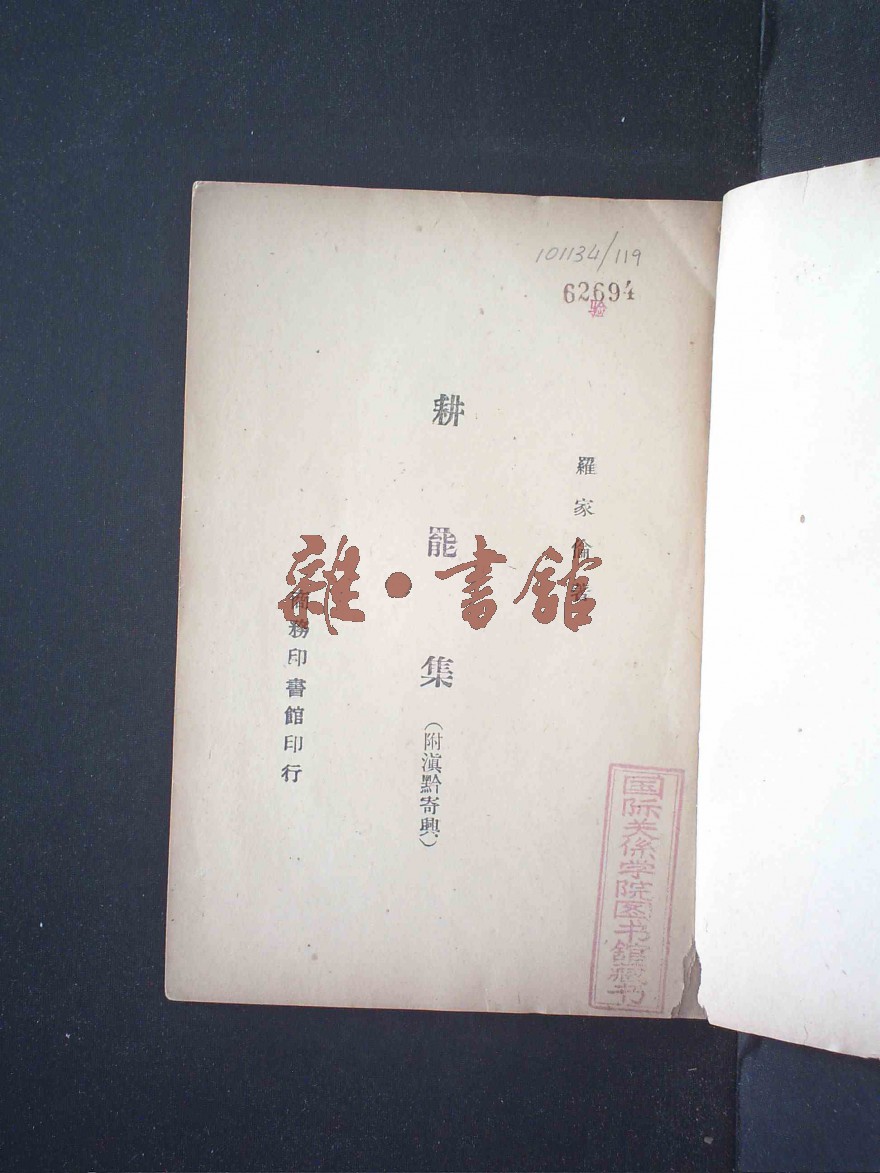 101134/119
62694
羅家倫著
耕罷集
（附滇黔寄興）
商務印書館印行
雜·書館
国际关係学院图书馆藏书